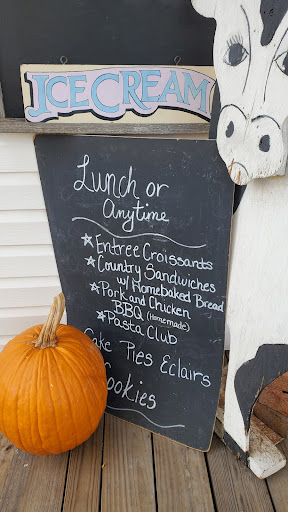 ICE CREAM
Lunch or
anytime
Entree Croissants
Country Sandwiches
w/ Homebaked Bread
Pork and Chicken
BBQ (Homemade)
Pasta Club
Cake Pies Eclairs
Cookies